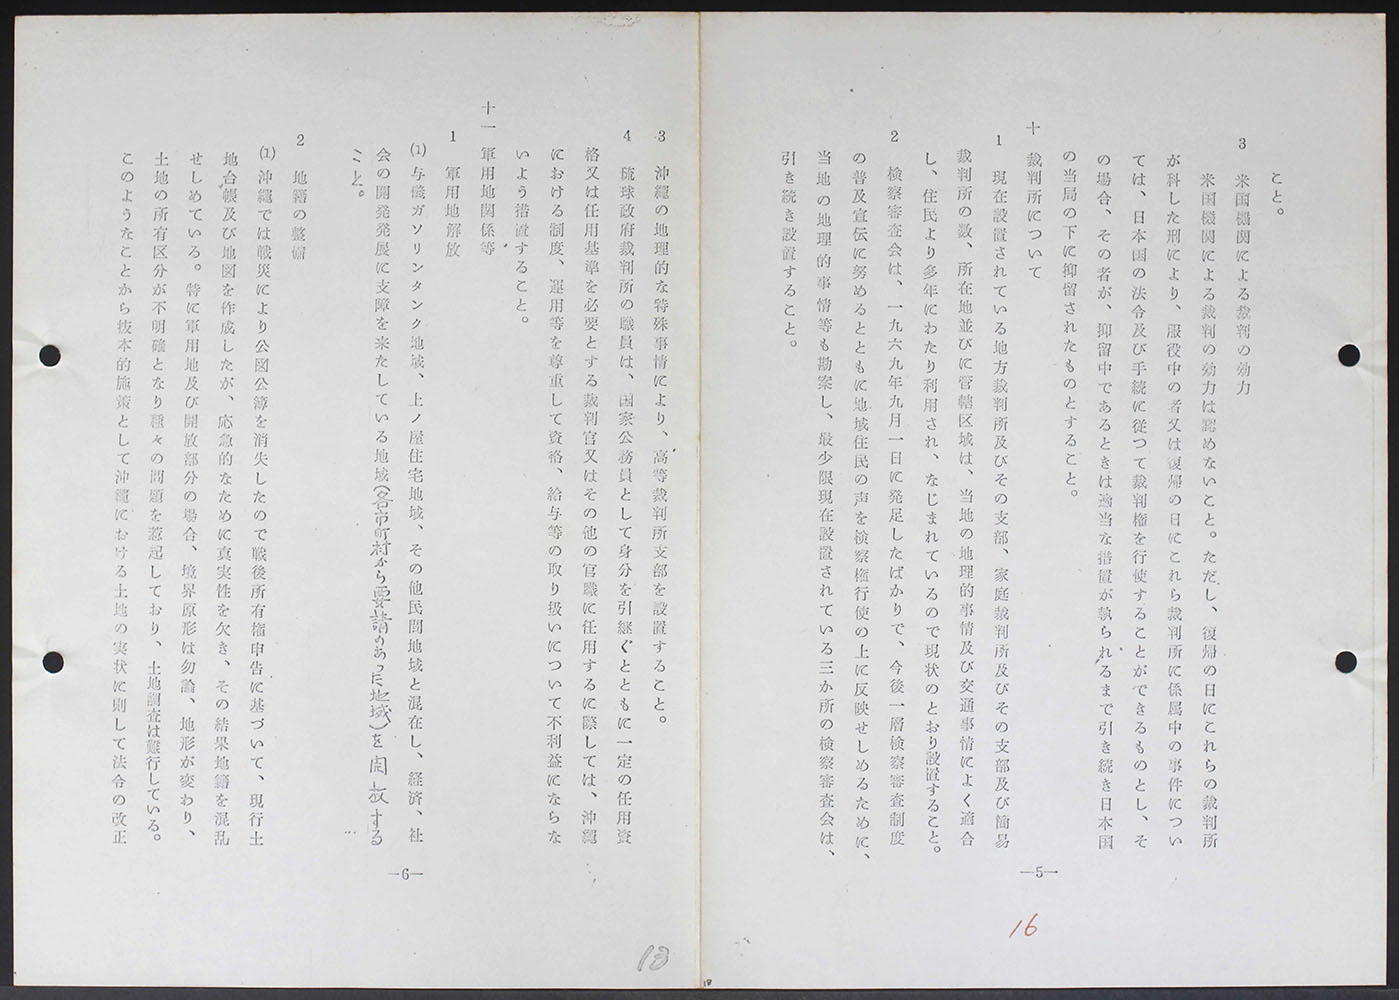 こと。
3　米国機関による裁判の効力
米国機関による裁判の効力は認めないこと。ただし、復帰の日にこれらの裁判所
が科した刑により、服役中の者又は復帰の日にこれら裁判所に係属中の事件につい
ては、日本国の法令及び手続に従つて裁判権を行使することができるものとし、そ
の場合、その者が、抑留中であるときは適当な措置が執られるまで引き続き日本国
の当局の下に抑留されたものとすること。
十　裁判所について
1　現在設置されている地方裁判所及びその支部、家庭裁判所及びその支部及び簡易
裁判所の数、所在地並びに管轄区域は、当地の地理的事情及び交通事情によく適合
し、住民より多年にわたり利用され、なじまれているので現状のとおり設置すること。
2　検察審査会は、一九六九年九月一日に発足したばかりで、今後一層検察審査制度
の普及宣伝に努めるとともに地域住民の声を検察権行使の上に反映せしめるために、
当地の地理的事情等も勘案し、最少限現在設置されている三か所の検察審査会は、
引き続き設置すること。
—5—
16
3　沖縄の地理的な特殊事情により、高等裁判所支部を設置すること。
4　琉球政府裁判所の職員は、国家公務員として身分を引継ぐとともに一定の任用資
格又は任用基準を必要とする裁判官又はその他の官職に任用するに際しては、沖縄
における制度、運用等を尊重して資格、給与等の取り扱いについて不利益にならな
いよう措置すること。
十一　軍用地関係等
1　軍用地解放
(1) 与儀ガソリンタンク地域、上ノ屋住宅地域、その他民間地域と混在し、経済、社
会の開発発展に支障を来たしている地域(各市町村から要請のあった地域)を開放する
こと。
2　地籍の整備
(1) 沖縄では戦災により公図公簿を消失したので戦後所有権申告に基づいて、現行土
地台帳及び地図を作成したが、応急的なために真実性を欠き、その結果地籍を混乱
せしめている。特に軍用地及び開放部分の場合、境界原形は勿論、地形が変わり、
土地の所有区分が不明確となり種々の問題を惹起しており、土地調査は難行している。
このようなことから抜本的施策として沖縄における土地の実状に則して法令の改正
—6—
13
18